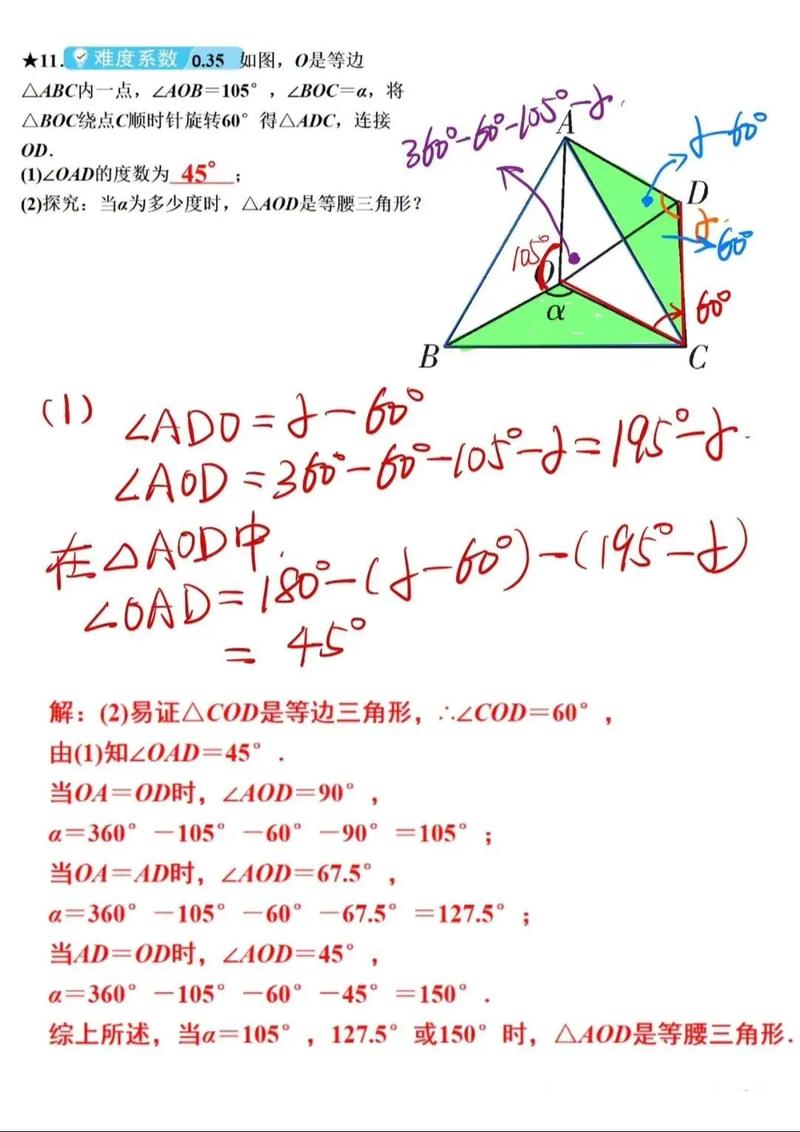 ★11. 难度系数 0.35 如图，O是等边
△ABC内一点，∠AOB＝105°，∠BOC＝α，将
△BOC绕点C顺时针旋转60°得△ADC，连接
OD．
(1)∠OAD的度数为 45° ；
(2)探究：当α为多少度时，△AOD是等腰三角形？
360°-60°-105°-α
A
α-60°
D
α
60°
105°
O
α
60°
B
C
(1)
∠ADO=α-60°
∠AOD=360°-60°-105°-α=195°-α.
在△AOD中.
∠OAD=180°-(α-60°)-(195°-α)
= 45°
解：(2)易证△COD是等边三角形，∴∠COD＝60°，
由(1)知∠OAD＝45°．
当OA＝OD时，∠AOD＝90°，
α＝360°－105°－60°－90°＝105°；
当OA＝AD时，∠AOD＝67.5°，
α＝360°－105°－60°－67.5°＝127.5°；
当AD＝OD时，∠AOD＝45°，
α＝360°－105°－60°－45°＝150°．
综上所述，当α＝105°，127.5°或150°时，△AOD是等腰三角形．